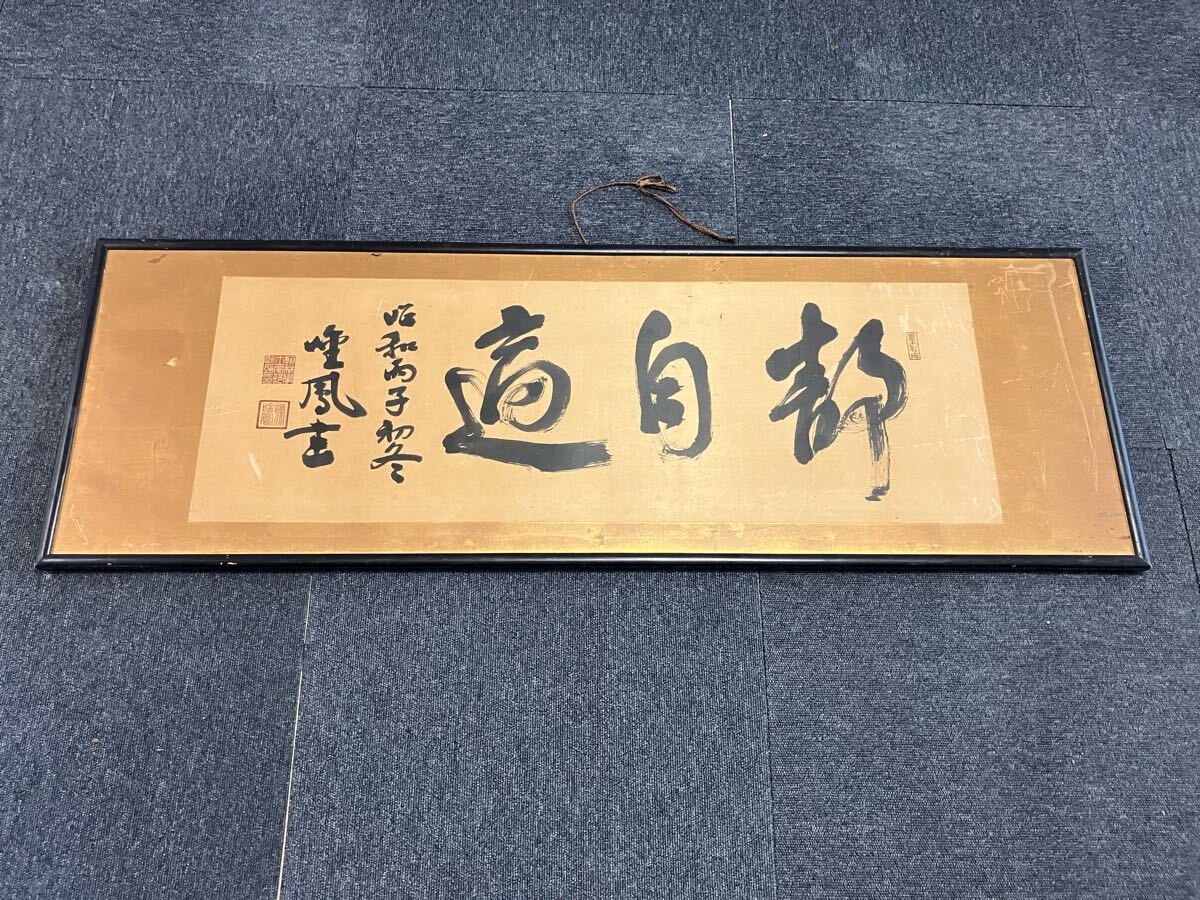 静自適
昭和丙子初冬
鳳書